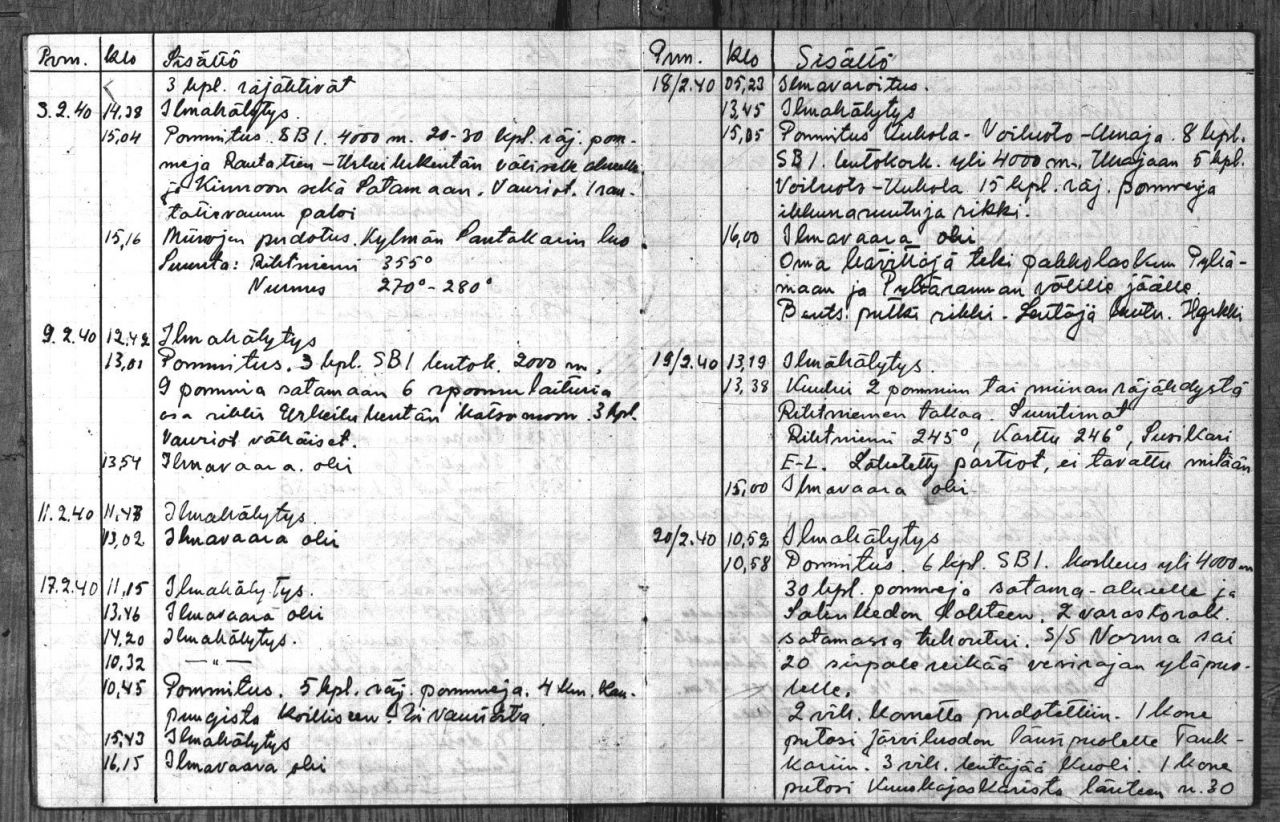 Pvm. klo Sisältö
3 kpl. räjähtivät
3.2.40 14,38 Ilmahälytys.
15,04 Pommitus. SB1. 4000 m. 20-30 kpl. räj. pom-
meja Rautatien - Urheilukentän väliselle alueelle
ja Kinnoon sekä Satamaan. Vauriot. 1 rau-
tatievaunu paloi
15,16 Miinojen pudotus. Kylmän Santakarin luo
Suunta: Rihtniemi 355°
Nurmes 270° - 280°
9.2.40 12,42 Ilmahälytys
13,01 Pommitus. 3 kpl. SB1 lentok. 2000 m.
9 pommia satamaan 6
osa rikki Urheilukentän katsomon. 3 kpl.
Vauriot vähäiset.
13,54 Ilmavaara ohi
11.2.40 11,48 Ilmahälytys.
13,02 Ilmavaara ohi
17.2.40 11,15 Ilmahälytys.
13,46 Ilmavaara ohi
14,20 Ilmahälytys.
10,32 — " —
10,45 Pommitus. 5 kpl. räj. pommeja. 4 km. kau-
pungista koilliseen. Ei vaurioita
15,43 Ilmahälytys
16,15 Ilmavaara ohi
Pvm. klo Sisältö
18/2.40 05,23 Ilmavaroitus.
13,45 Ilmahälytys
15,05 Pommitus Kuhola - Voiluoto - Unaja 8 kpl.
SB1. lentokork. yli 4000 m. Unajaan 5 kpl.
Voiluoto - Kuhola 15 kpl. räj. pommeja
ikkunaruutuja rikki.
16,00 Ilmavaara ohi
Oma hävittäjä teki pakkolaskun Pyhä-
maan ja Pyhärannan välille jäälle.
Bents. putki rikki. Lentäjä
19/2.40 13,19 Ilmahälytys.
13,38 Kuului 2 pommin tai miinan räjähdystä
Rihtniemen takaa. Suunnat
Rihtniemi 245°, Karttu 246°, Susikari
E-L. Lähetetty partiot, ei tavattu mitään
15,00 Ilmavaara ohi
20/2.40 10,52 Ilmahälytys
10,58 Pommitus. 6 kpl. SB1. korkeus yli 4000 m
30 kpl. pommeja satama-alueelle ja
Salinkedon Lahteen. 2 varastorak.
satamassa tuhoutui. S/S Norma sai
20 sirpale reikää vesirajan yläpuo-
lelle.
2 vih. konetta pudotettiin. 1 kone
putosi Järviluodon länsipuolelle Tauk-
kariin. 3 vih. lentäjää kuoli. 1 kone
putosi Kuuskajaskarista länteen n. 30